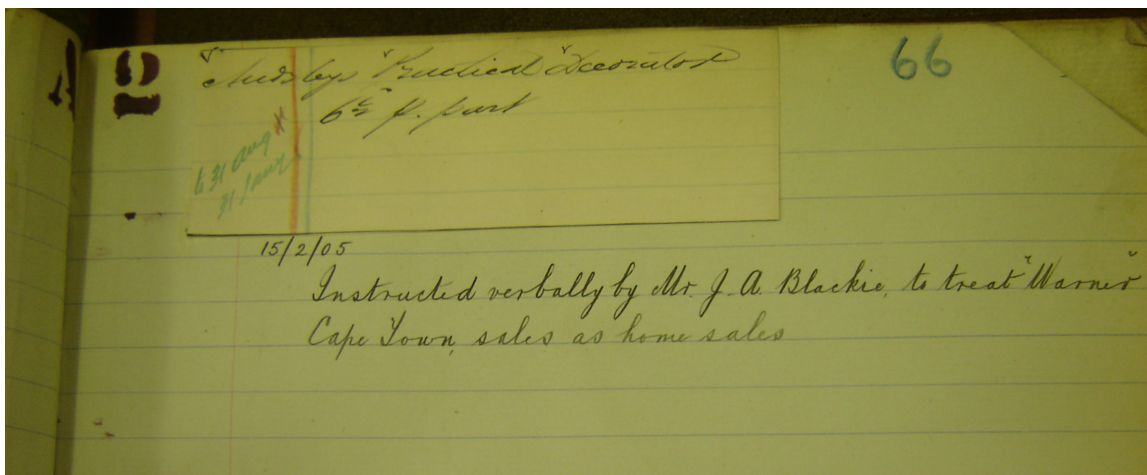 66
"Audsley's "Practical" Decorator
6d p. part
to 31 Aug
31 Jany
15/2/05
Instructed verbally by Mr. J. A. Blackie, to treat "Warner"
Cape Town, sales as home sales